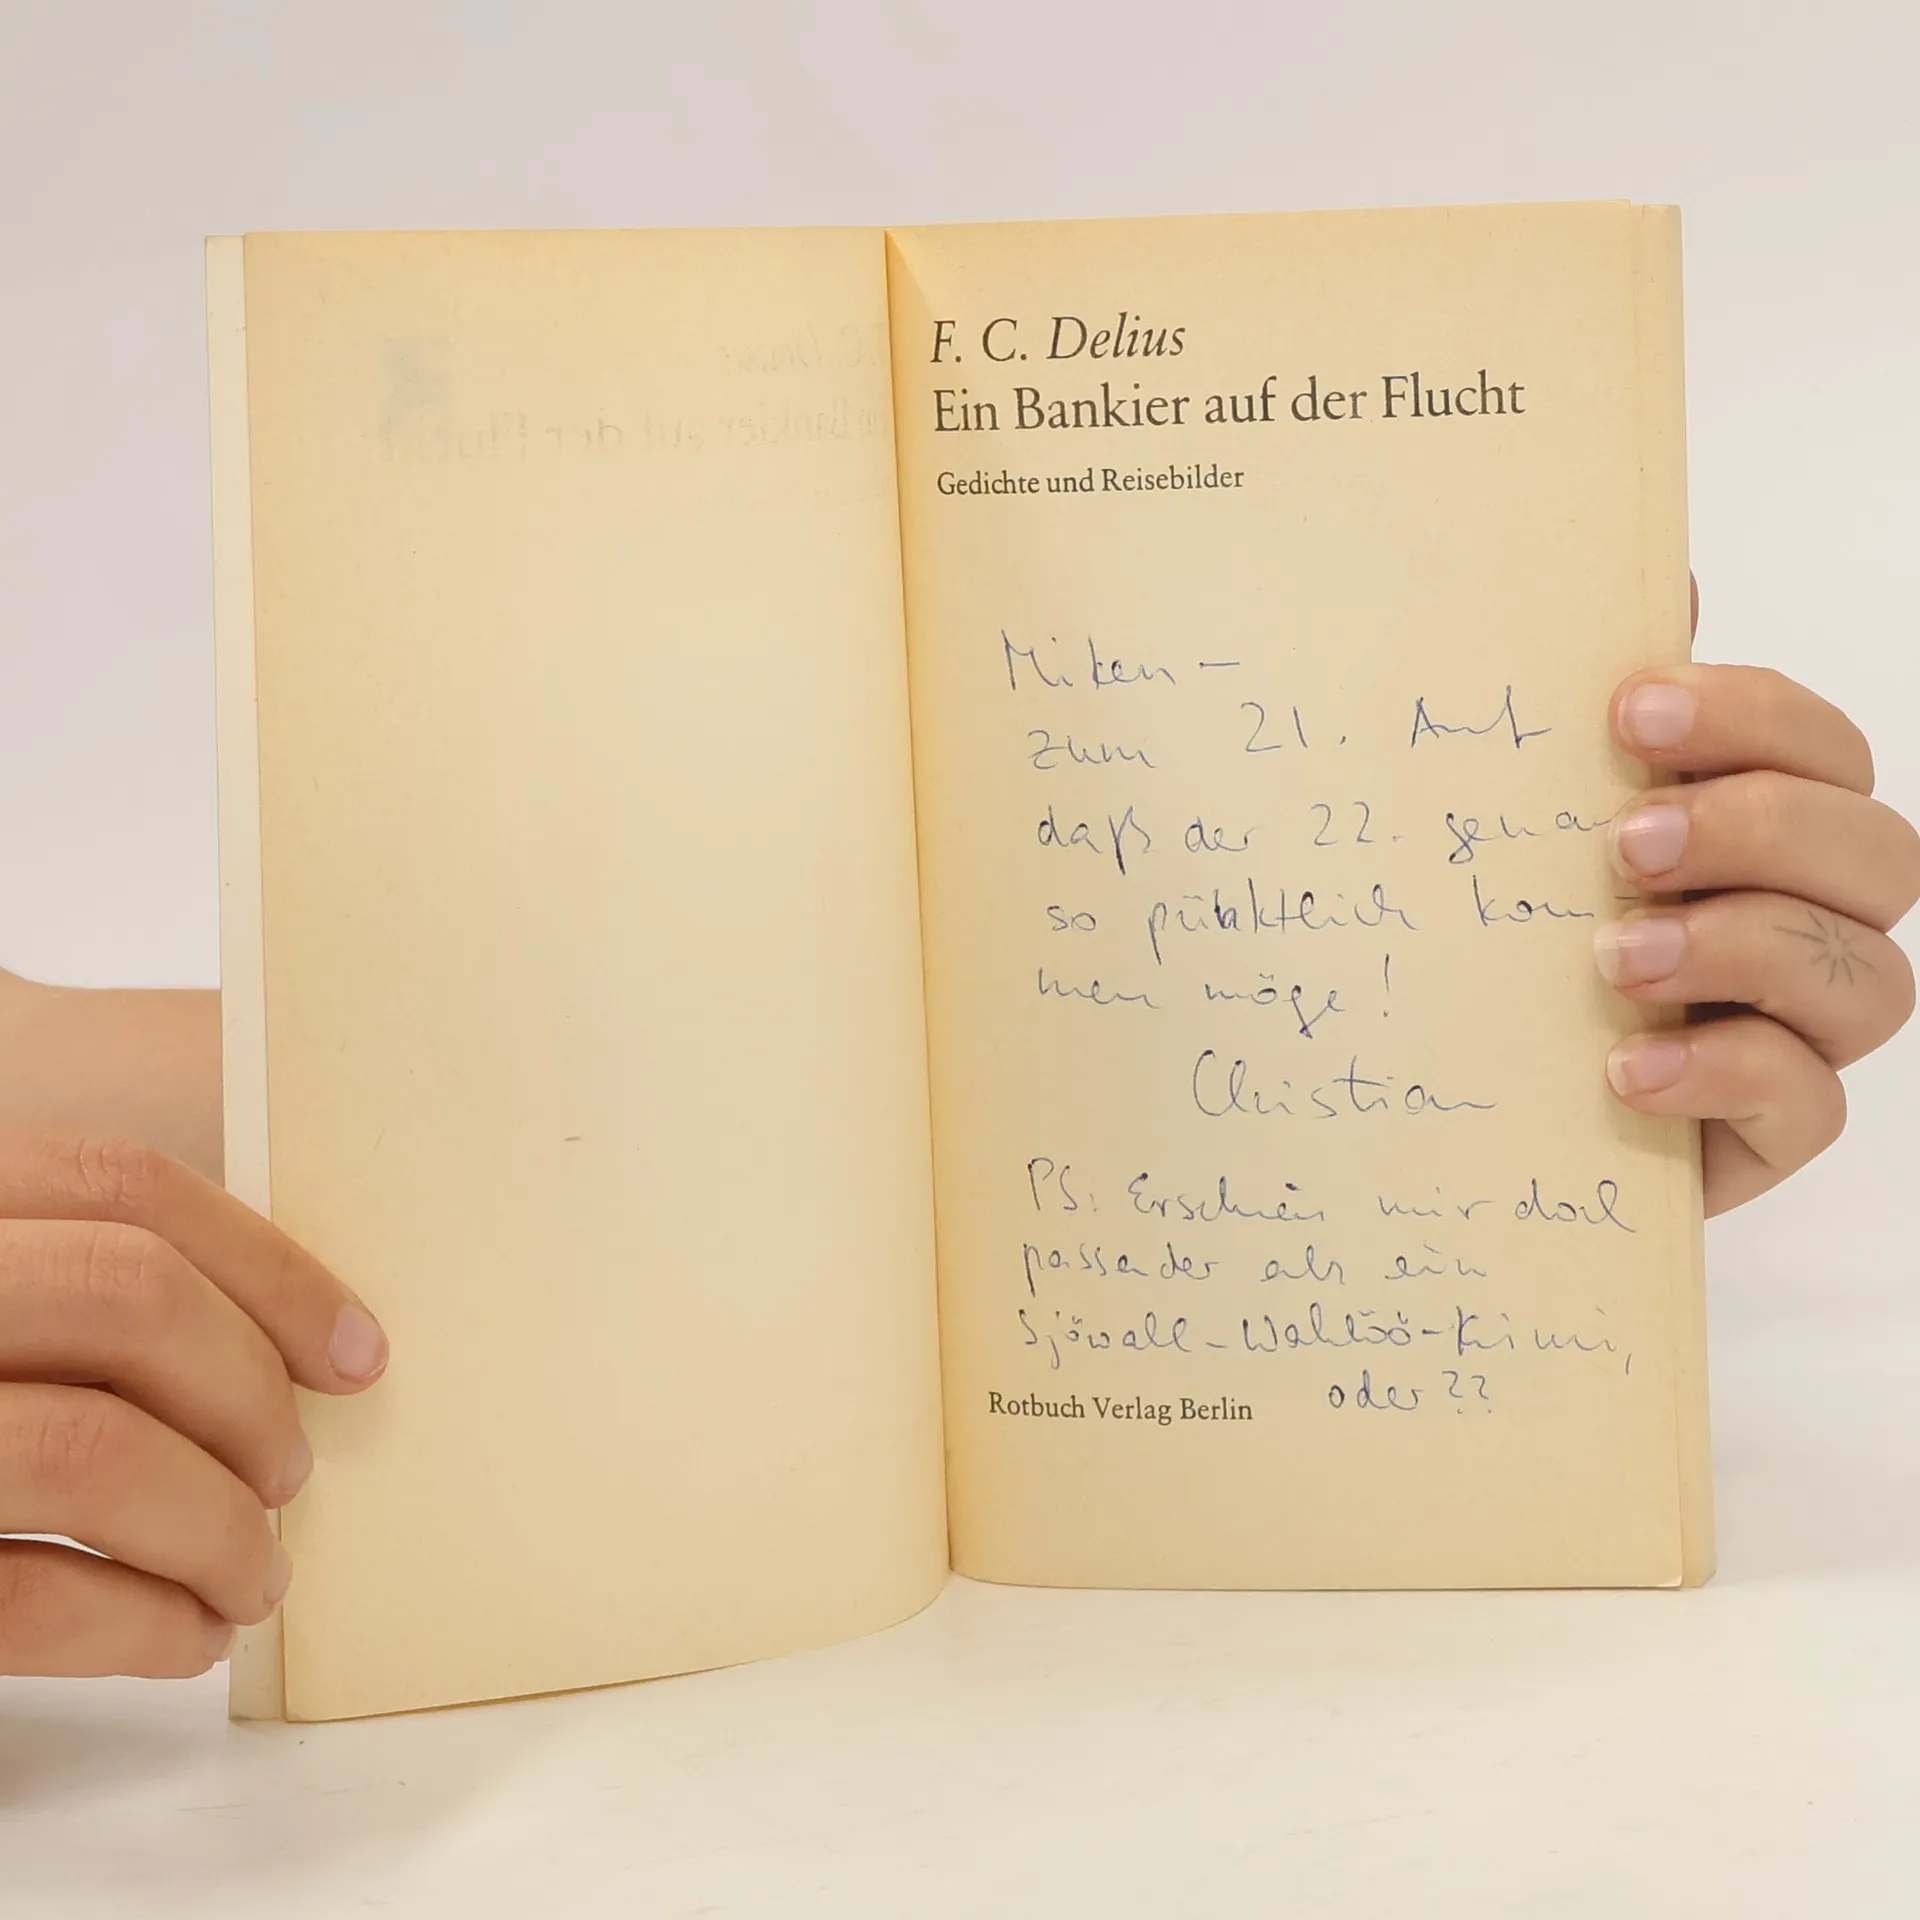 F. C. Delius
Ein Bankier auf der Flucht
Gedichte und Reisebilder
zum 21.
daß der 22. genau
so pünktlich kom-
men möge!
Christian
PS: Erschien mir doch
passender als ein
Sjöwall-Wahlöö-Krimi,
oder??
Rotbuch Verlag Berlin